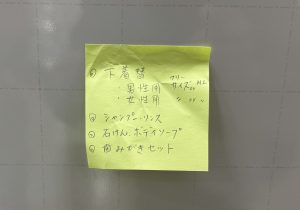 ① 下着替
・男性用 フリーサイズ
・女性用 〃
② シャンプー・リンス
③ 石けん、ボディソープ
④ 歯みがきセット